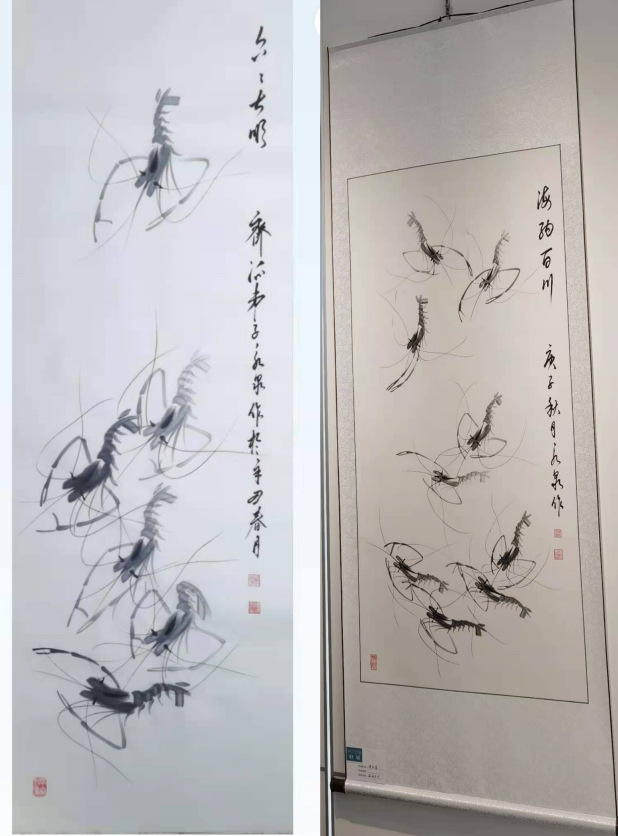 六々大順
齊派弟子永泉作於辛丑春月
海納百川
庚子秋月永泉作